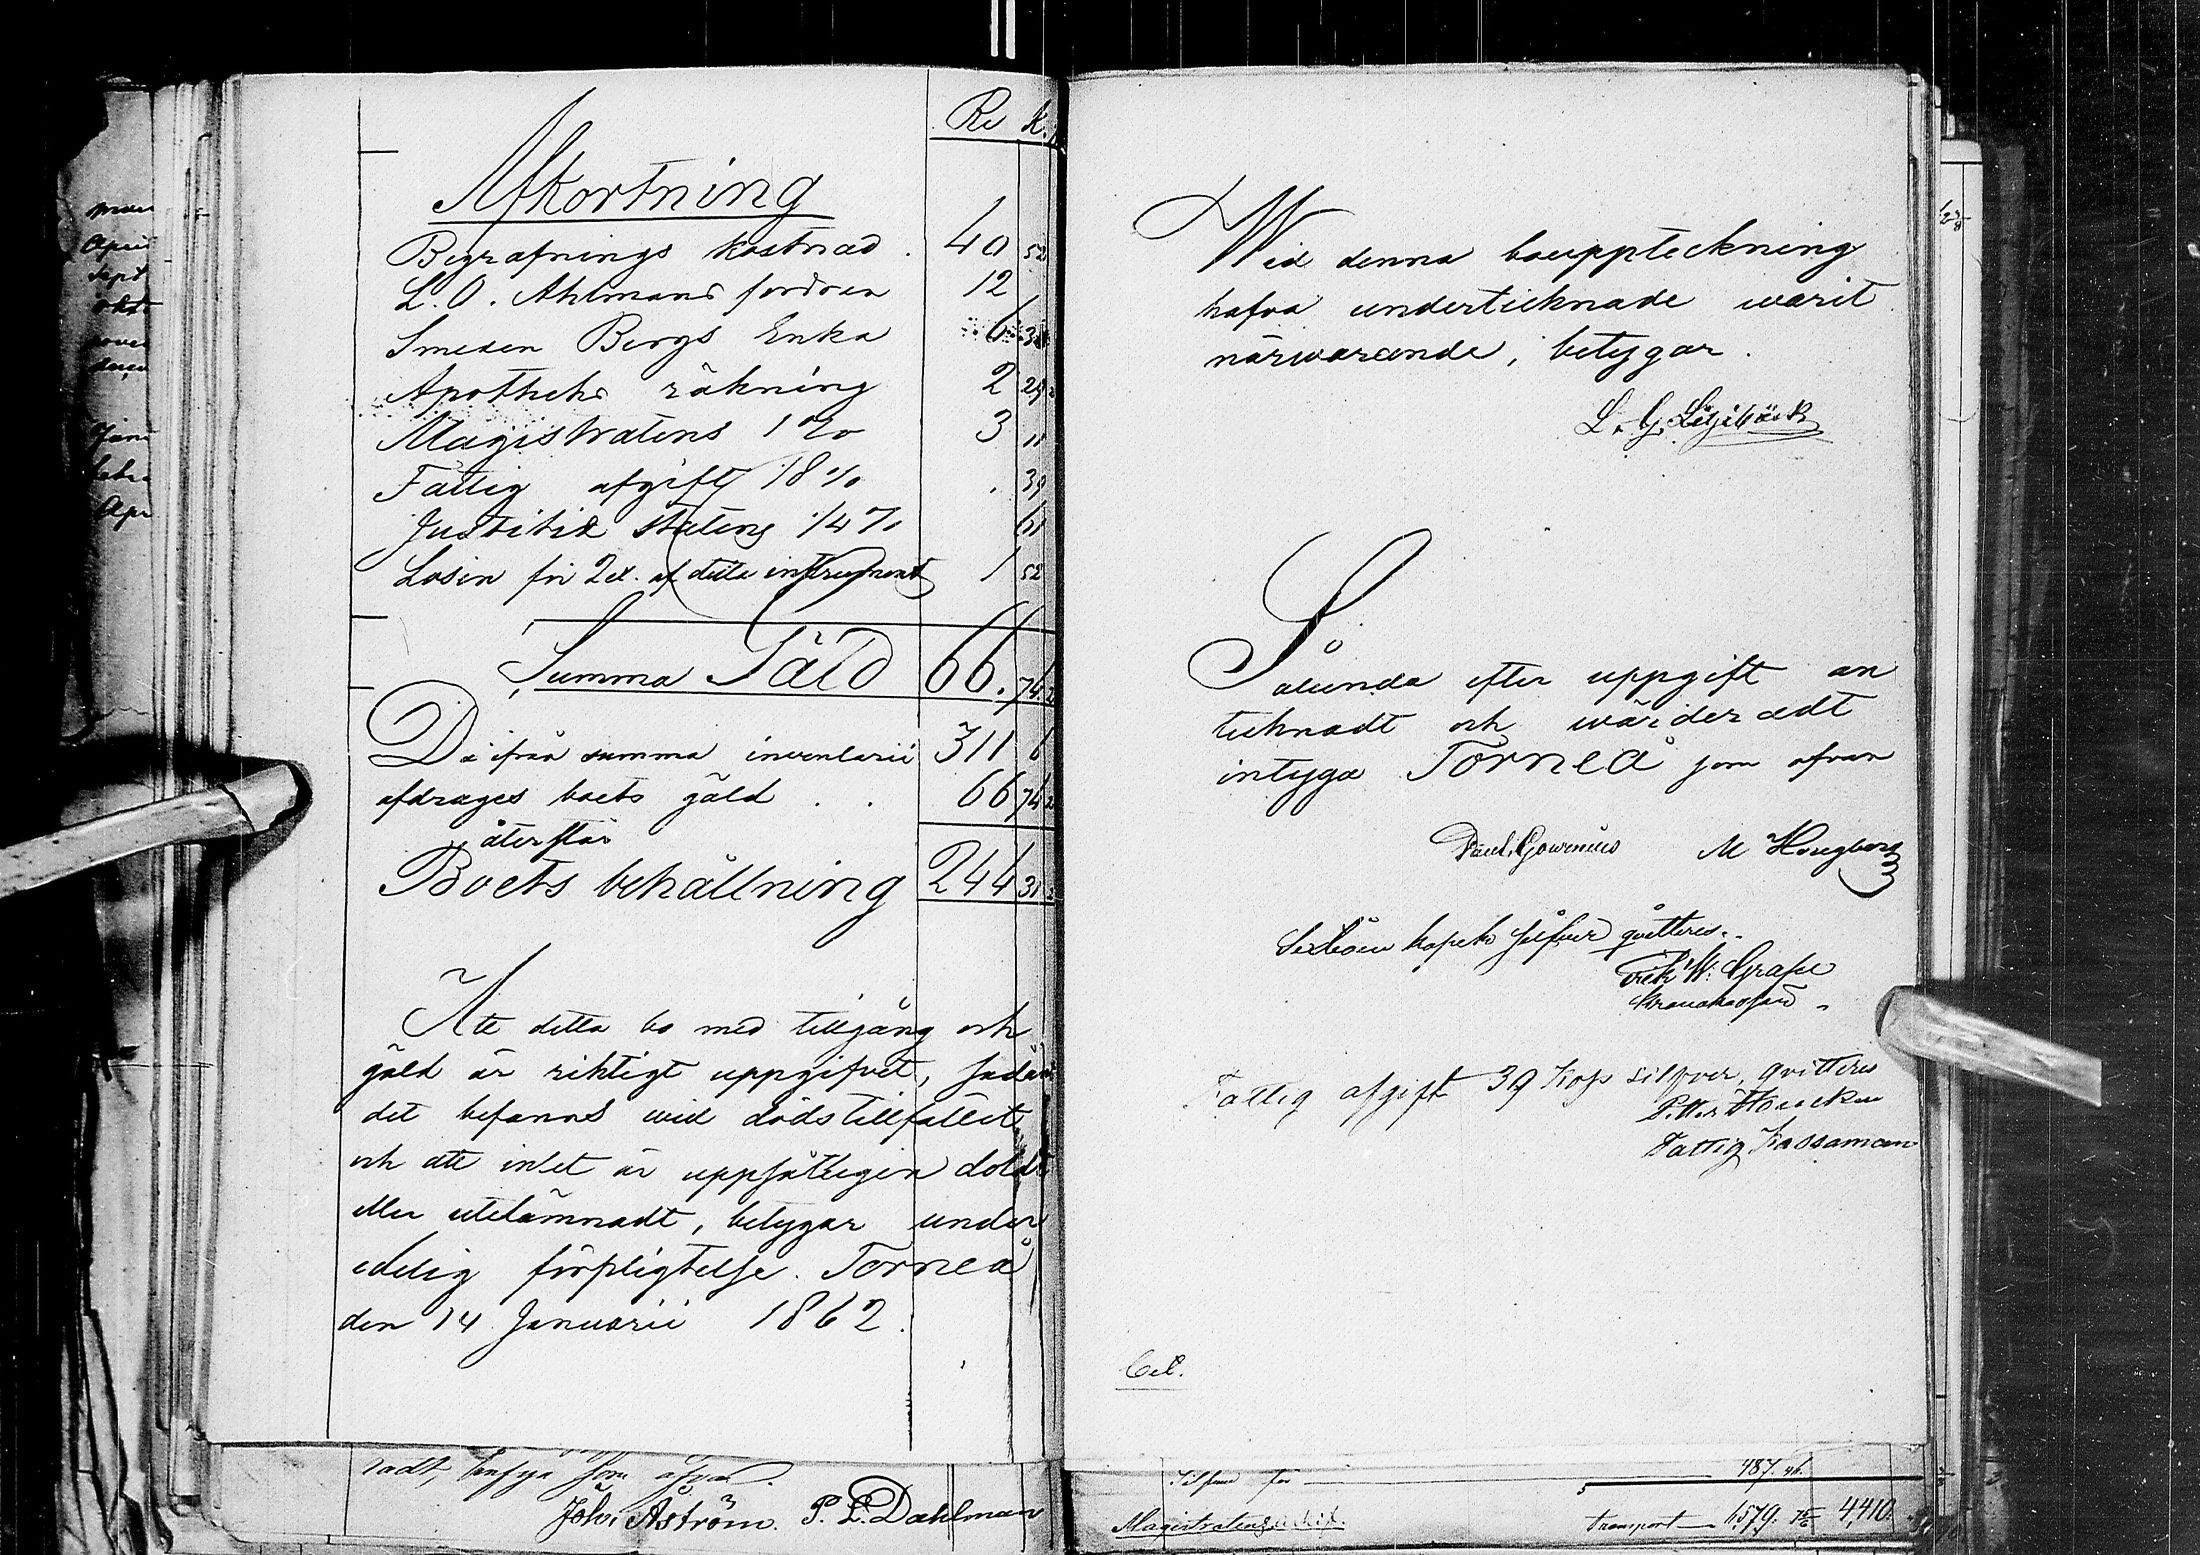 Ru K.
Afkortning
Begrafnings kostnad . 40 52
L. O. Ahlmans fordran 12
Smeden Bergs Enka 6 3
Apotheks räkning 2 29
Magistratens 1 % 3 11
Fattig afgift 1/8 % . 39
Justitiæ Statens 1/4 % 61
Lösen för 2 ex. af detta instrument 1 52
Summa Gäld 66. 74
Då ifrån summa inventarii 311 6
afdrages boets gäld . . 66 74
återstår
Boets behållning 244 31
Att detta bo med tillgång och
gäld är riktigt uppgifvet, sådant
det befanns wid dödstillfället
och att intet är uppsåtligen doldt
eller utelämnadt, betygar under
edelig förpligtelse. Torneå
den 14 Januarii 1862.
radt, intyga som ofvan.
Joh. Åström. P. L. Dahlman
Wid denna bouppteckning
hafva undertecknade warit
närwarande, betygar.
L. G. Liljebäck
Sålunda efter uppgift an
tecknadt och wärderadt
intyga Torneå som ofvan
Paul. M
Sextioen kopek silfver qvitteres.
Fredr. W. Grape
Fattig afgift 39 kop silfver, qvitteres
Petter
Fattig Kassaman
Cel.
Silfver för 487. 46.
Magistratens transport 1,579. 4,410.